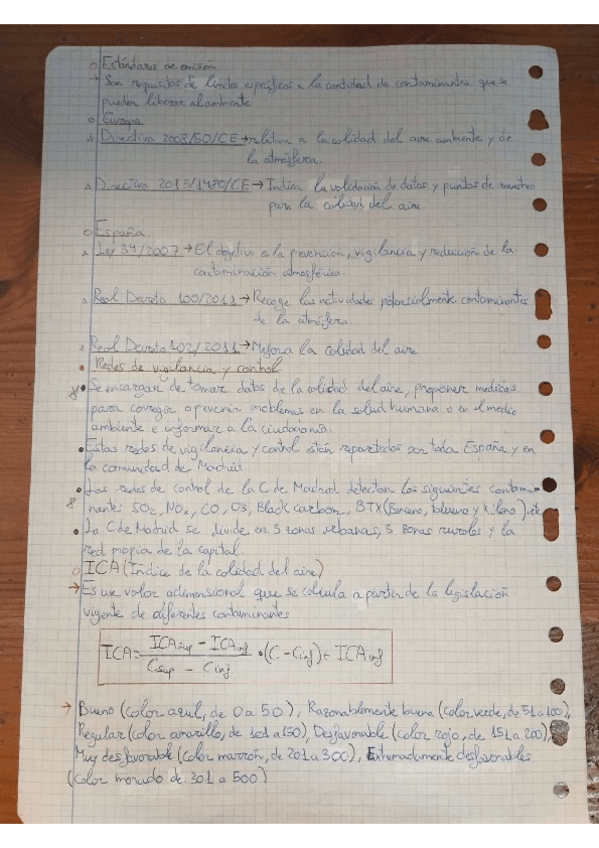 Estándares de emisión
→ Son requisitos de límites específicos a la cantidad de contaminantes que se
pueden liberar al ambiente
Europa
Directiva 2008/50/CE → relativa a la calidad del aire ambiente y de
la atmósfera.
Directiva 2015/1480/CE → Indica la validación de datos y puntos de muestreo
para la calidad del aire.
España.
Ley 34/2007 → El objetivo es la prevención, vigilancia y reducción de la
contaminación atmosférica.
Real Decreto 100/2011 → Recoge las actividades potencialmente contaminantes
de la atmósfera.
Real Decreto 102/2011 → Mejora la calidad del aire
• Redes de vigilancia y control
• Se encargan de tomar datos de la calidad del aire, proponer medidas
para corregir o prevenir problemas en la salud humana o en el medio
ambiente e informar a la ciudadanía.
• Estas redes de vigilancia y control están repartidas por toda España y en
la comunidad de Madrid.
• Las redes de control de la C de Madrid detectan los siguientes contami-
nantes SO2, NOx, CO, O3, Black carbon, BTX (Benceno, tolueno y Xileno), etc
• La C de Madrid se divide en 3 zonas urbanas, 3 zonas rurales y la
red propia de la capital
ICA (Índice de la calidad del aire)
→ Es un valor adimensional que se calcula a partir de la legislación
vigente de diferentes contaminantes
ICA = ICAsup - ICAinf / Csup - Cinf • (C - Cinf) + ICAinf
→ Bueno (color azul, de 0 a 50), Razonablemente bueno (color verde, de 51 a 100),
Regular (color amarillo, de 101 a 150), Desfavorable (color rojo, de 151 a 200),
Muy desfavorable (color marrón, de 201 a 300), Extremadamente desfavorables
(color morado de 301 a 500)